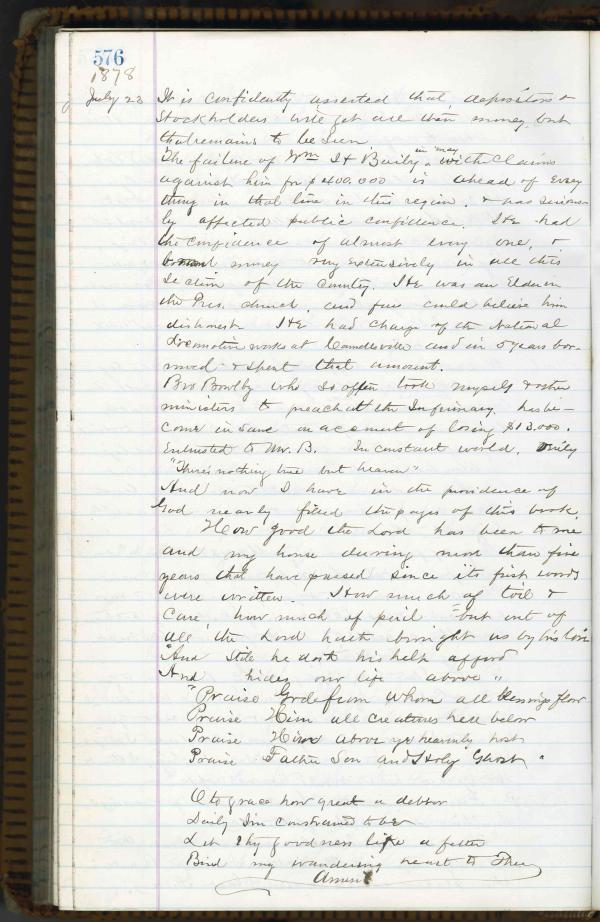 576
1878
July 23 It is confidently asserted that, depositors &
stockholders will get all their money, but
that remains to be seen
The failure of Wm H Baily in May with claims
against him for $400.000 is ahead of every
thing in that line in this region, & has serious
ly affected public confidence. He had
the confidence of almost every one, &
money very extensively in all this
section of the county. He was an Elder in
the Pres. church, and few could believe him
dishonest He had charge of the National
Locomotive works at and in 5 years bor-
rowed & spent that amount.
Bro Bowlby who so often took myself & other
ministers to preach at the Infirmary, has be-
come insane on account of losing $13.000.
Entrusted to Mr. B. Inconstant world, truly
"There's nothing true but heaven"
And now I have in the providence of
God nearly filled the pages of this book
How good the Lord has been to me
and my house during more than five
years that have passed since its first words
were written. How much of toil &
care, how much of peril - but out of
all the Lord hath brought us by his love
"And still he doth his help afford
And hides our life above"
"Praise God from whom all blessings flow
Praise Him all creatures here below
Praise Him above ye heavenly host
Praise Father Son and Holy Ghost"
O to grace how great a debtor
Daily I'm constrained to be
Let thy goodness like a fetter
Bind my wandering heart to Thee
Amen